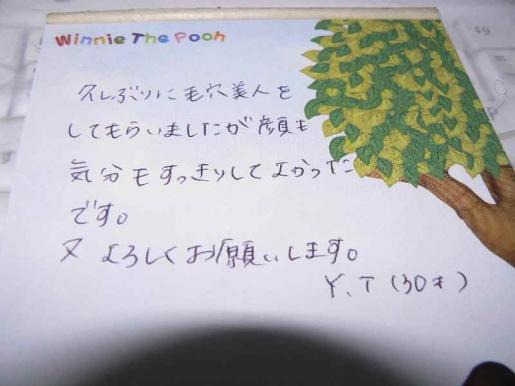 Winnie The Pooh
久しぶりに毛穴美人を
してもらいましたが顔も
気分もすっきりしてよかった
です。
又よろしくお願いします。
Y.T(30才)
F9